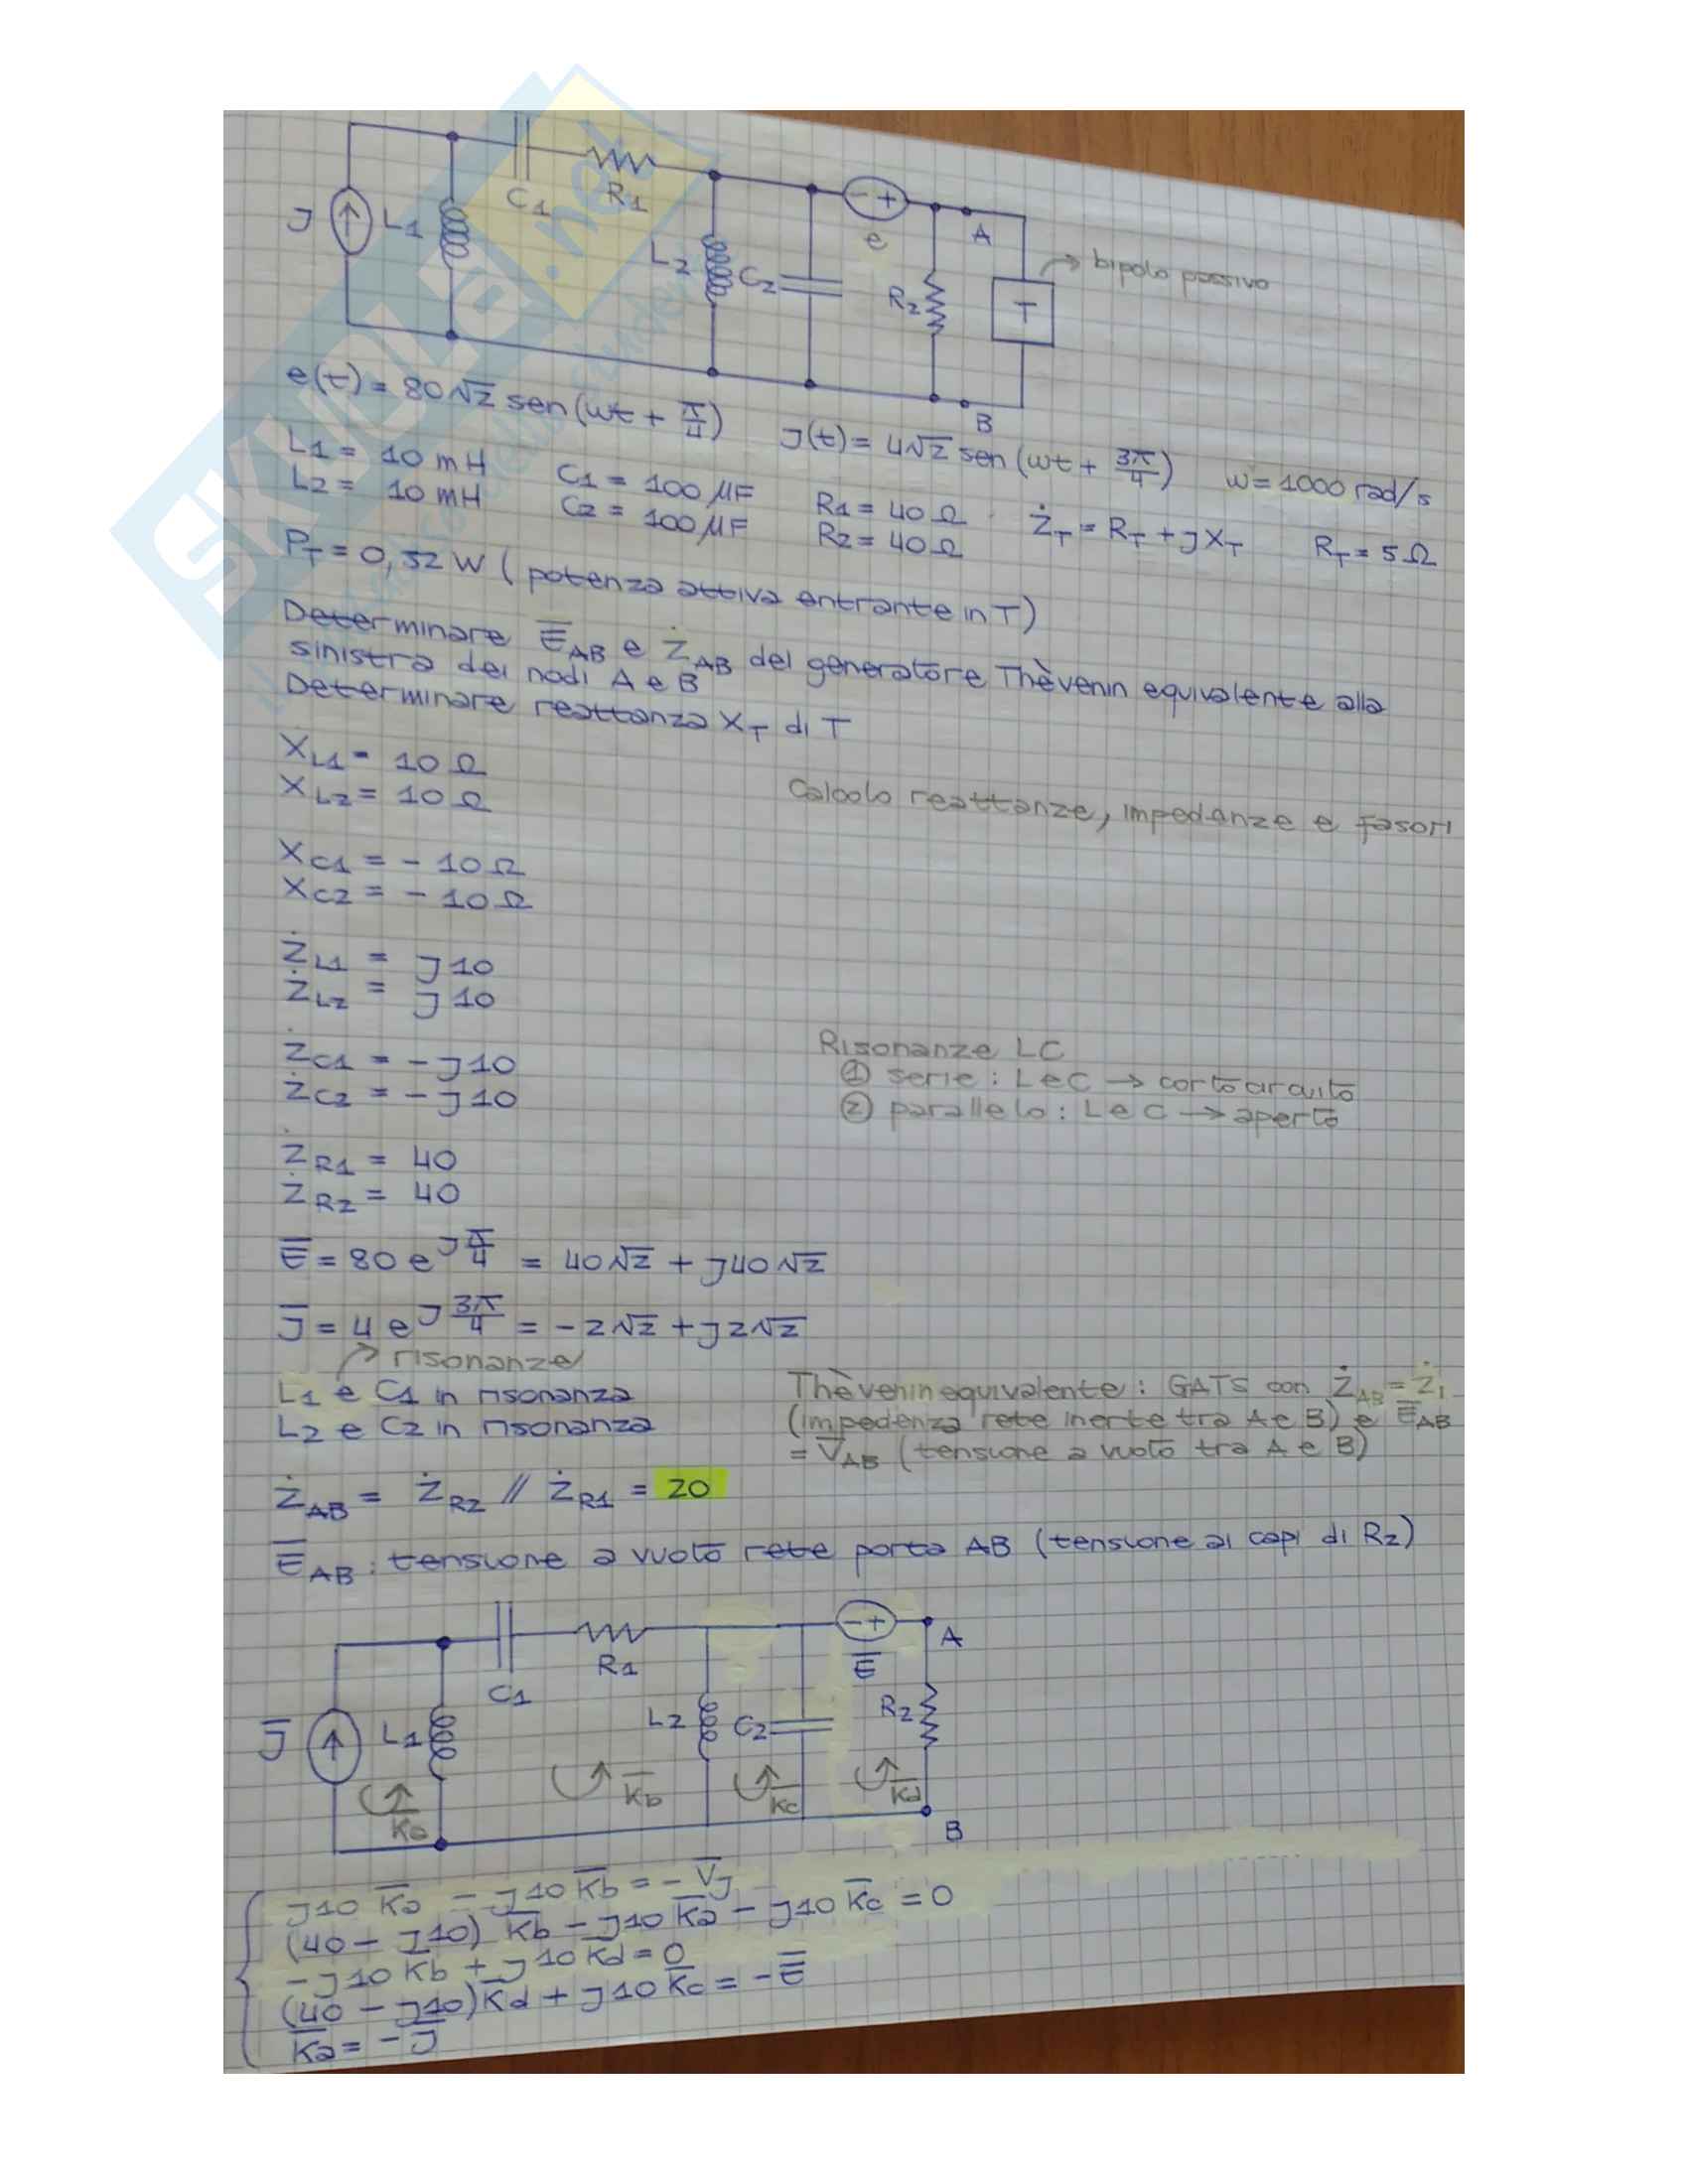 J
L1
C1
R1
L2
C2
- +
e
R2
A
B
T
→ bipolo passivo
e(t) = 80√2 sen(wt + π/4)
J(t) = 4√2 sen(wt + 3π/4)
w = 1000 rad/s
L1 = 10 mH
L2 = 10 mH
C1 = 100 μF
C2 = 100 μF
R1 = 40 Ω
R2 = 40 Ω
ŻT = RT + JXT
RT = 5 Ω
PT = 0,32 W (potenza attiva entrante in T)
Determinare E̅AB e ŻAB del generatore Thèvenin equivalente alla
sinistra dei nodi A e B
Determinare reattanza XT di T
XL1 = 10 Ω
XL2 = 10 Ω
Calcolo reattanze, impedanze e fasori
XC1 = - 10 Ω
XC2 = - 10 Ω
ŻL1 = J10
ŻL2 = J10
ŻC1 = -J10
ŻC2 = -J10
Risonanze LC
① serie : L e C → cortocircuito
② parallelo : L e C → aperto
ŻR1 = 40
ŻR2 = 40
E̅ = 80 e^Jπ/4 = 40√2 + J40√2
J̅ = 4 e^J3π/4 = -2√2 + J2√2
→ risonanze
L1 e C1 in risonanza
L2 e C2 in risonanza
Thèvenin equivalente : GATS con ŻAB = Żi
(impedenza rete inerte tra A e B) e E̅AB
= V̅AB (tensione a vuoto tra A e B)
ŻAB = ŻR2 // ŻR1 = 20
E̅AB : tensione a vuoto rete porta AB (tensione ai capi di R2)
J̅
L1
C1
R1
L2
C2
- +
E̅
R2
A
B
K̅a
K̅b
K̅c
K̅d
J10 K̅a - J10 K̅b = - V̅J
(40 - J10) K̅b - J10 K̅a - J10 K̅c = 0
- J10 K̅b + J10 K̅d = 0
(40 - J10) K̅d + J10 K̅c = - E̅
K̅a = - J̅
SKUOLA.net